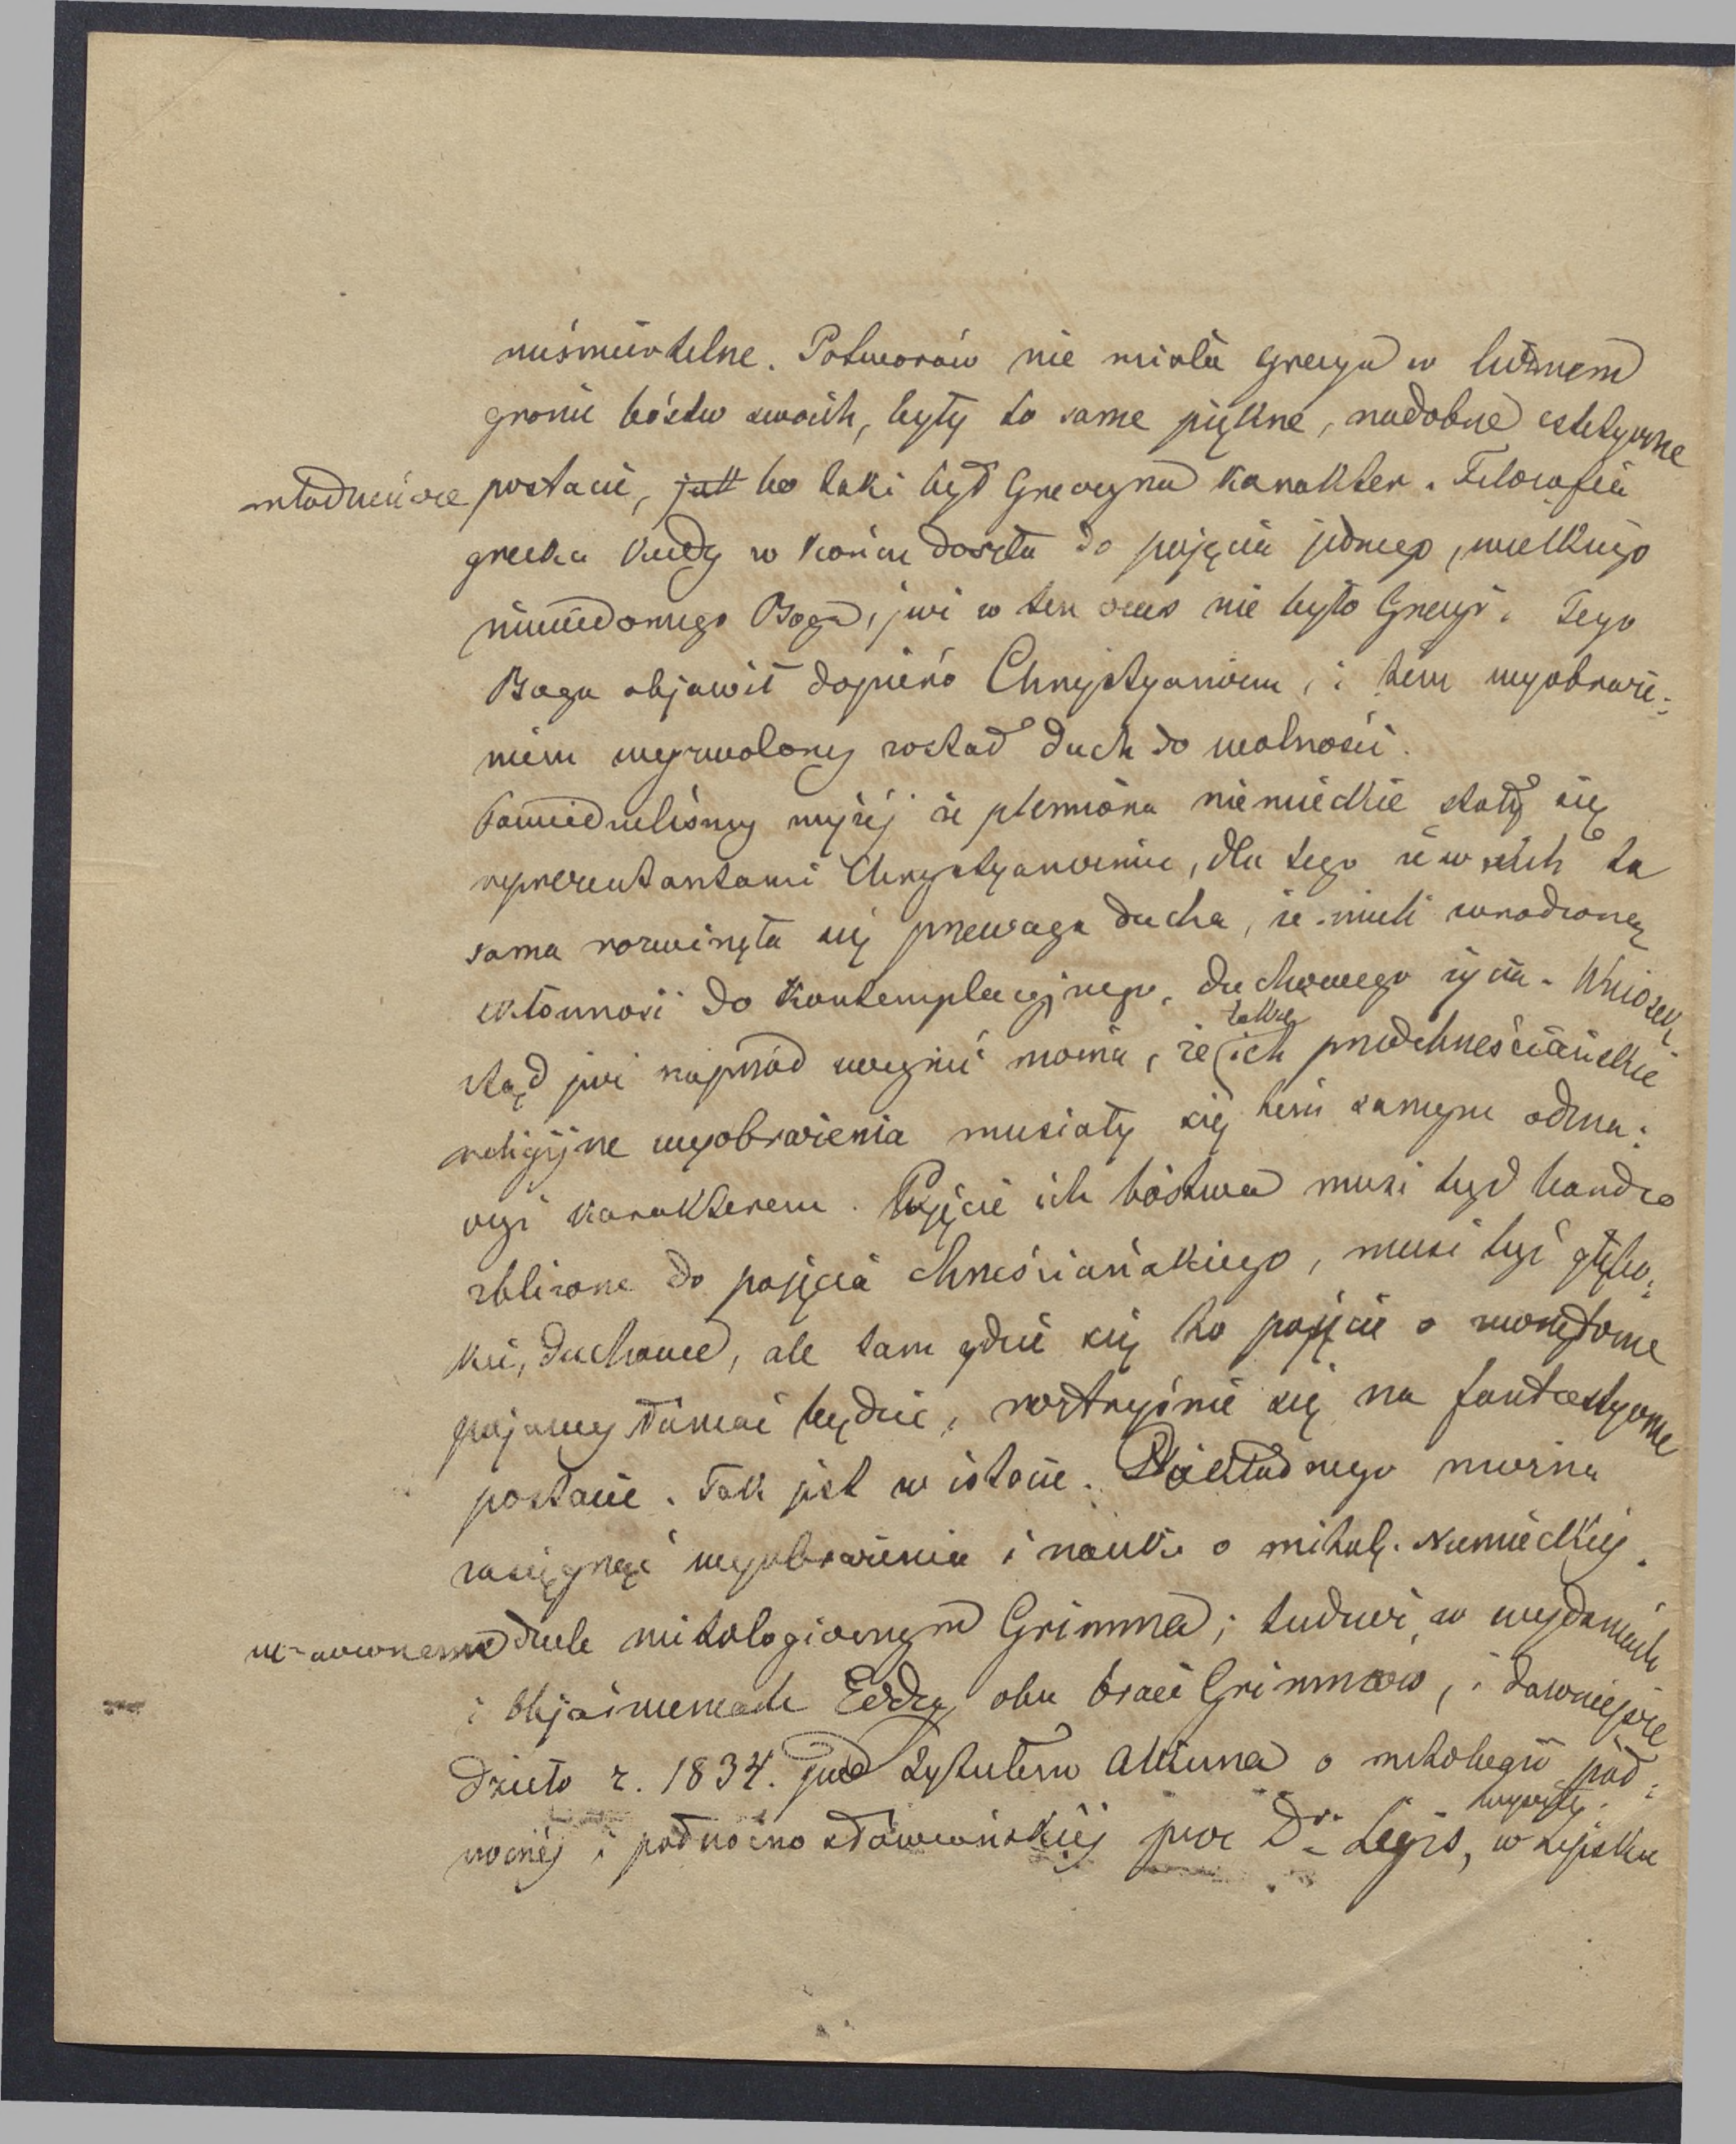 nieśmiertelne. Potworów nie miała Grecya w licznem
gronie bóstw swoich, były to same piękne, nadobne estetyczne
młodzieńcze postacie, jak bo taki był Grecyna karakter. Filozofia
grecka kiedy w końcu doszła do pojęcia jednego, wielkiego
niewidomego Boga, już w ten czas nie było Grecyi. Tego
Boga objawił dopiéro Chrystyanizm, i tém wyobraże-
niem wyzwolony został duch do wolności.
Powiedzieliśmy wyżéj że plemiona niemieckie stały się
reprezentantami Chrystyanizmu, dla tego że w nich ta
sama rozwinęła się przewaga ducha, że mieli wrodzoną
skłonność do kontemplacyjnego, duchowego życia. Wniosek
stąd już naprzód uczynić można, że także ich przedchrześciańskie
religijne wyobrażenia musiały się tém samym ozna-
czyć karakterem. Pojęcie ich bóstwa musi być bardzo
zbliżone do pojęcia chrześciańskiego, musi być głębo-
kie, duchowe, ale tam gdzie się to pojęcie o
pojawy łamać będzie, roztryśnie się na fantastyczne
postacie. Tak jest w istocie. Dokładnego można
zasięgnąć wyobrażenia i nauki o mitol. Niemieckiéj.
w uczonem dziele mitologicznym Grimma; tudzież w wydaniach
i objaśnieniach Eddy obu braci Grimmów, i dawniejsze
dzieło r. 1834. pod tytułem Alkuna o mitologii pół-
nocnéj i północno słowiańskiéj prze Dr. Legis, w Lipsku